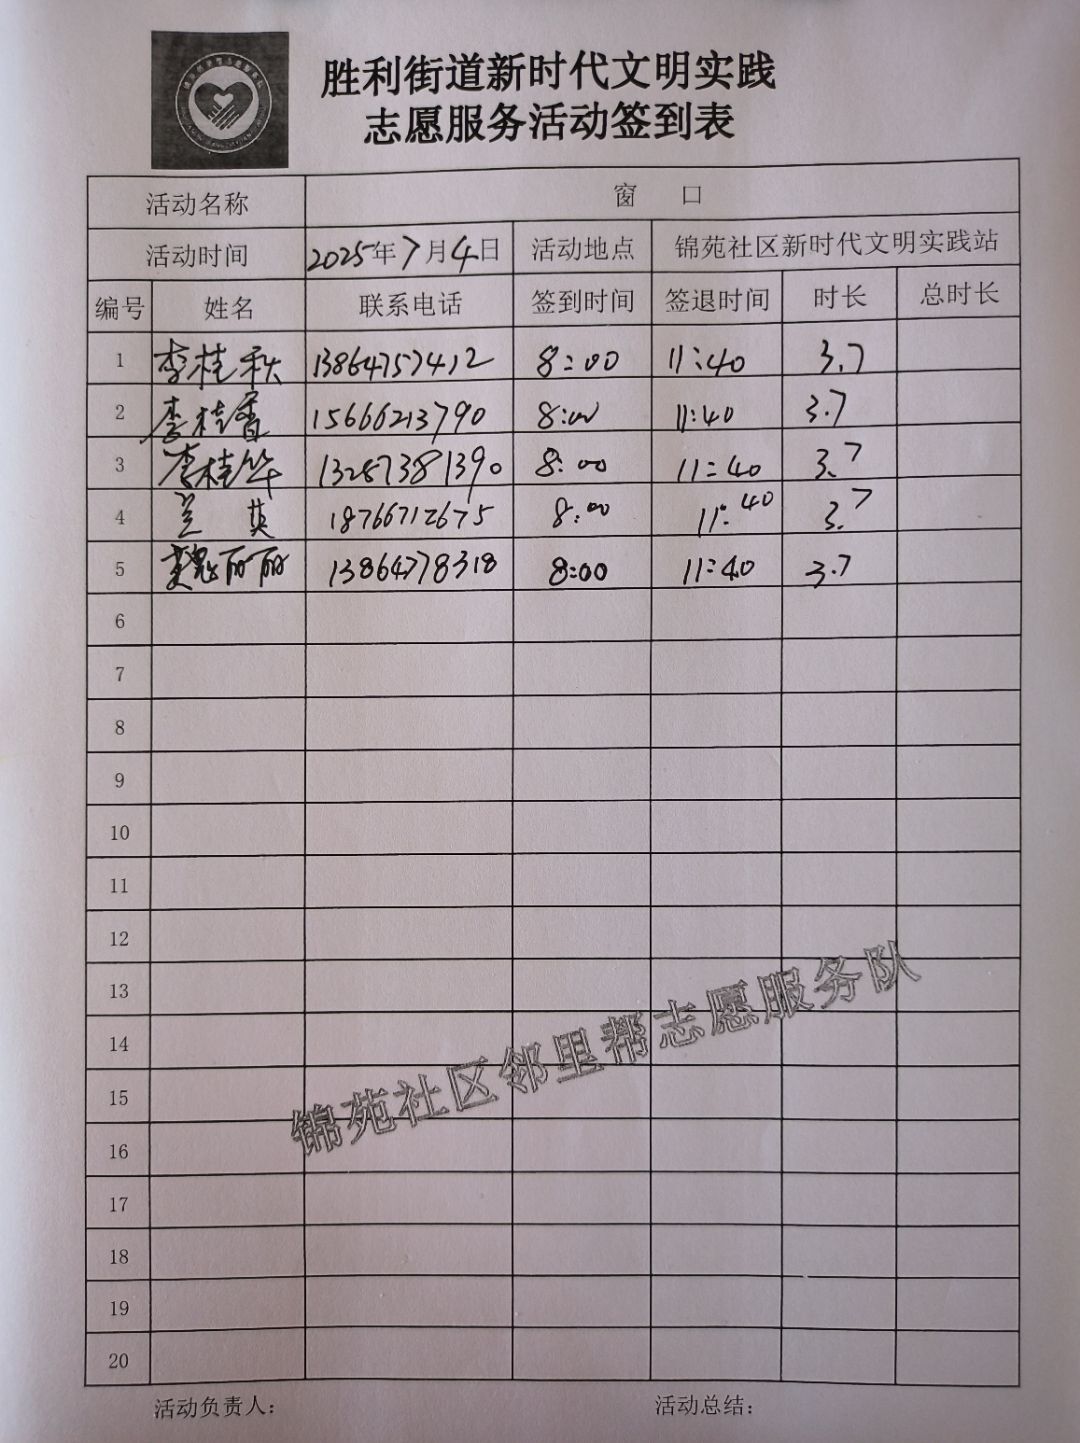 胜利街道新时代文明实践
志愿服务活动签到表
活动名称 窗 口
活动时间 2025年7月4日 活动地点 锦苑社区新时代文明实践站
编号 姓名 联系电话 签到时间 签退时间 时长 总时长
1 李桂秋 13864757412 8:00 11:40 3.7
2 李桂香 15666213790 8:00 11:40 3.7
3 李桂华 13287381390 8:00 11:40 3.7
4 兰 英 18766712675 8:00 11:40 3.7
5 魏丽丽 13864778318 8:00 11:40 3.7
6
7
8
9
10
11
12
13
14
15
16
17
18
19
20
锦苑社区邻里帮志愿服务队
活动负责人: 活动总结: